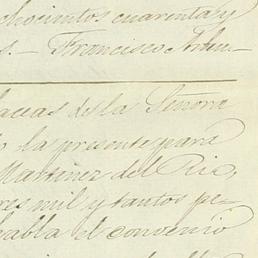 chocientos cuarenta y
s.— Francisco
aceas de la Señora
o la presente para
Martinez del Rio,
res mil y tantos pe-
habla el convenio